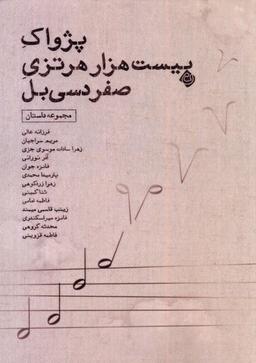 پژواکِ
بیست‌هزار هرتزیِ
صفر دسی‌بل
مجموعه داستان
فرزانه عالی
مریم سراجیان
زهرا سادات موسوی جزی
آذر نورانی
فائزه جوان
پارمیدا محمدی
زهرا زرنکوهی
ثنا کیمنی
فاطمه عباسی
زینب قاسمی میمند
فائزه میراسکندری
محدثه گروهی
فاطمه قزوینی